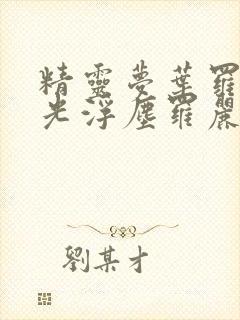 精靈夢葉羅
光浮塵羅麗
劉某才